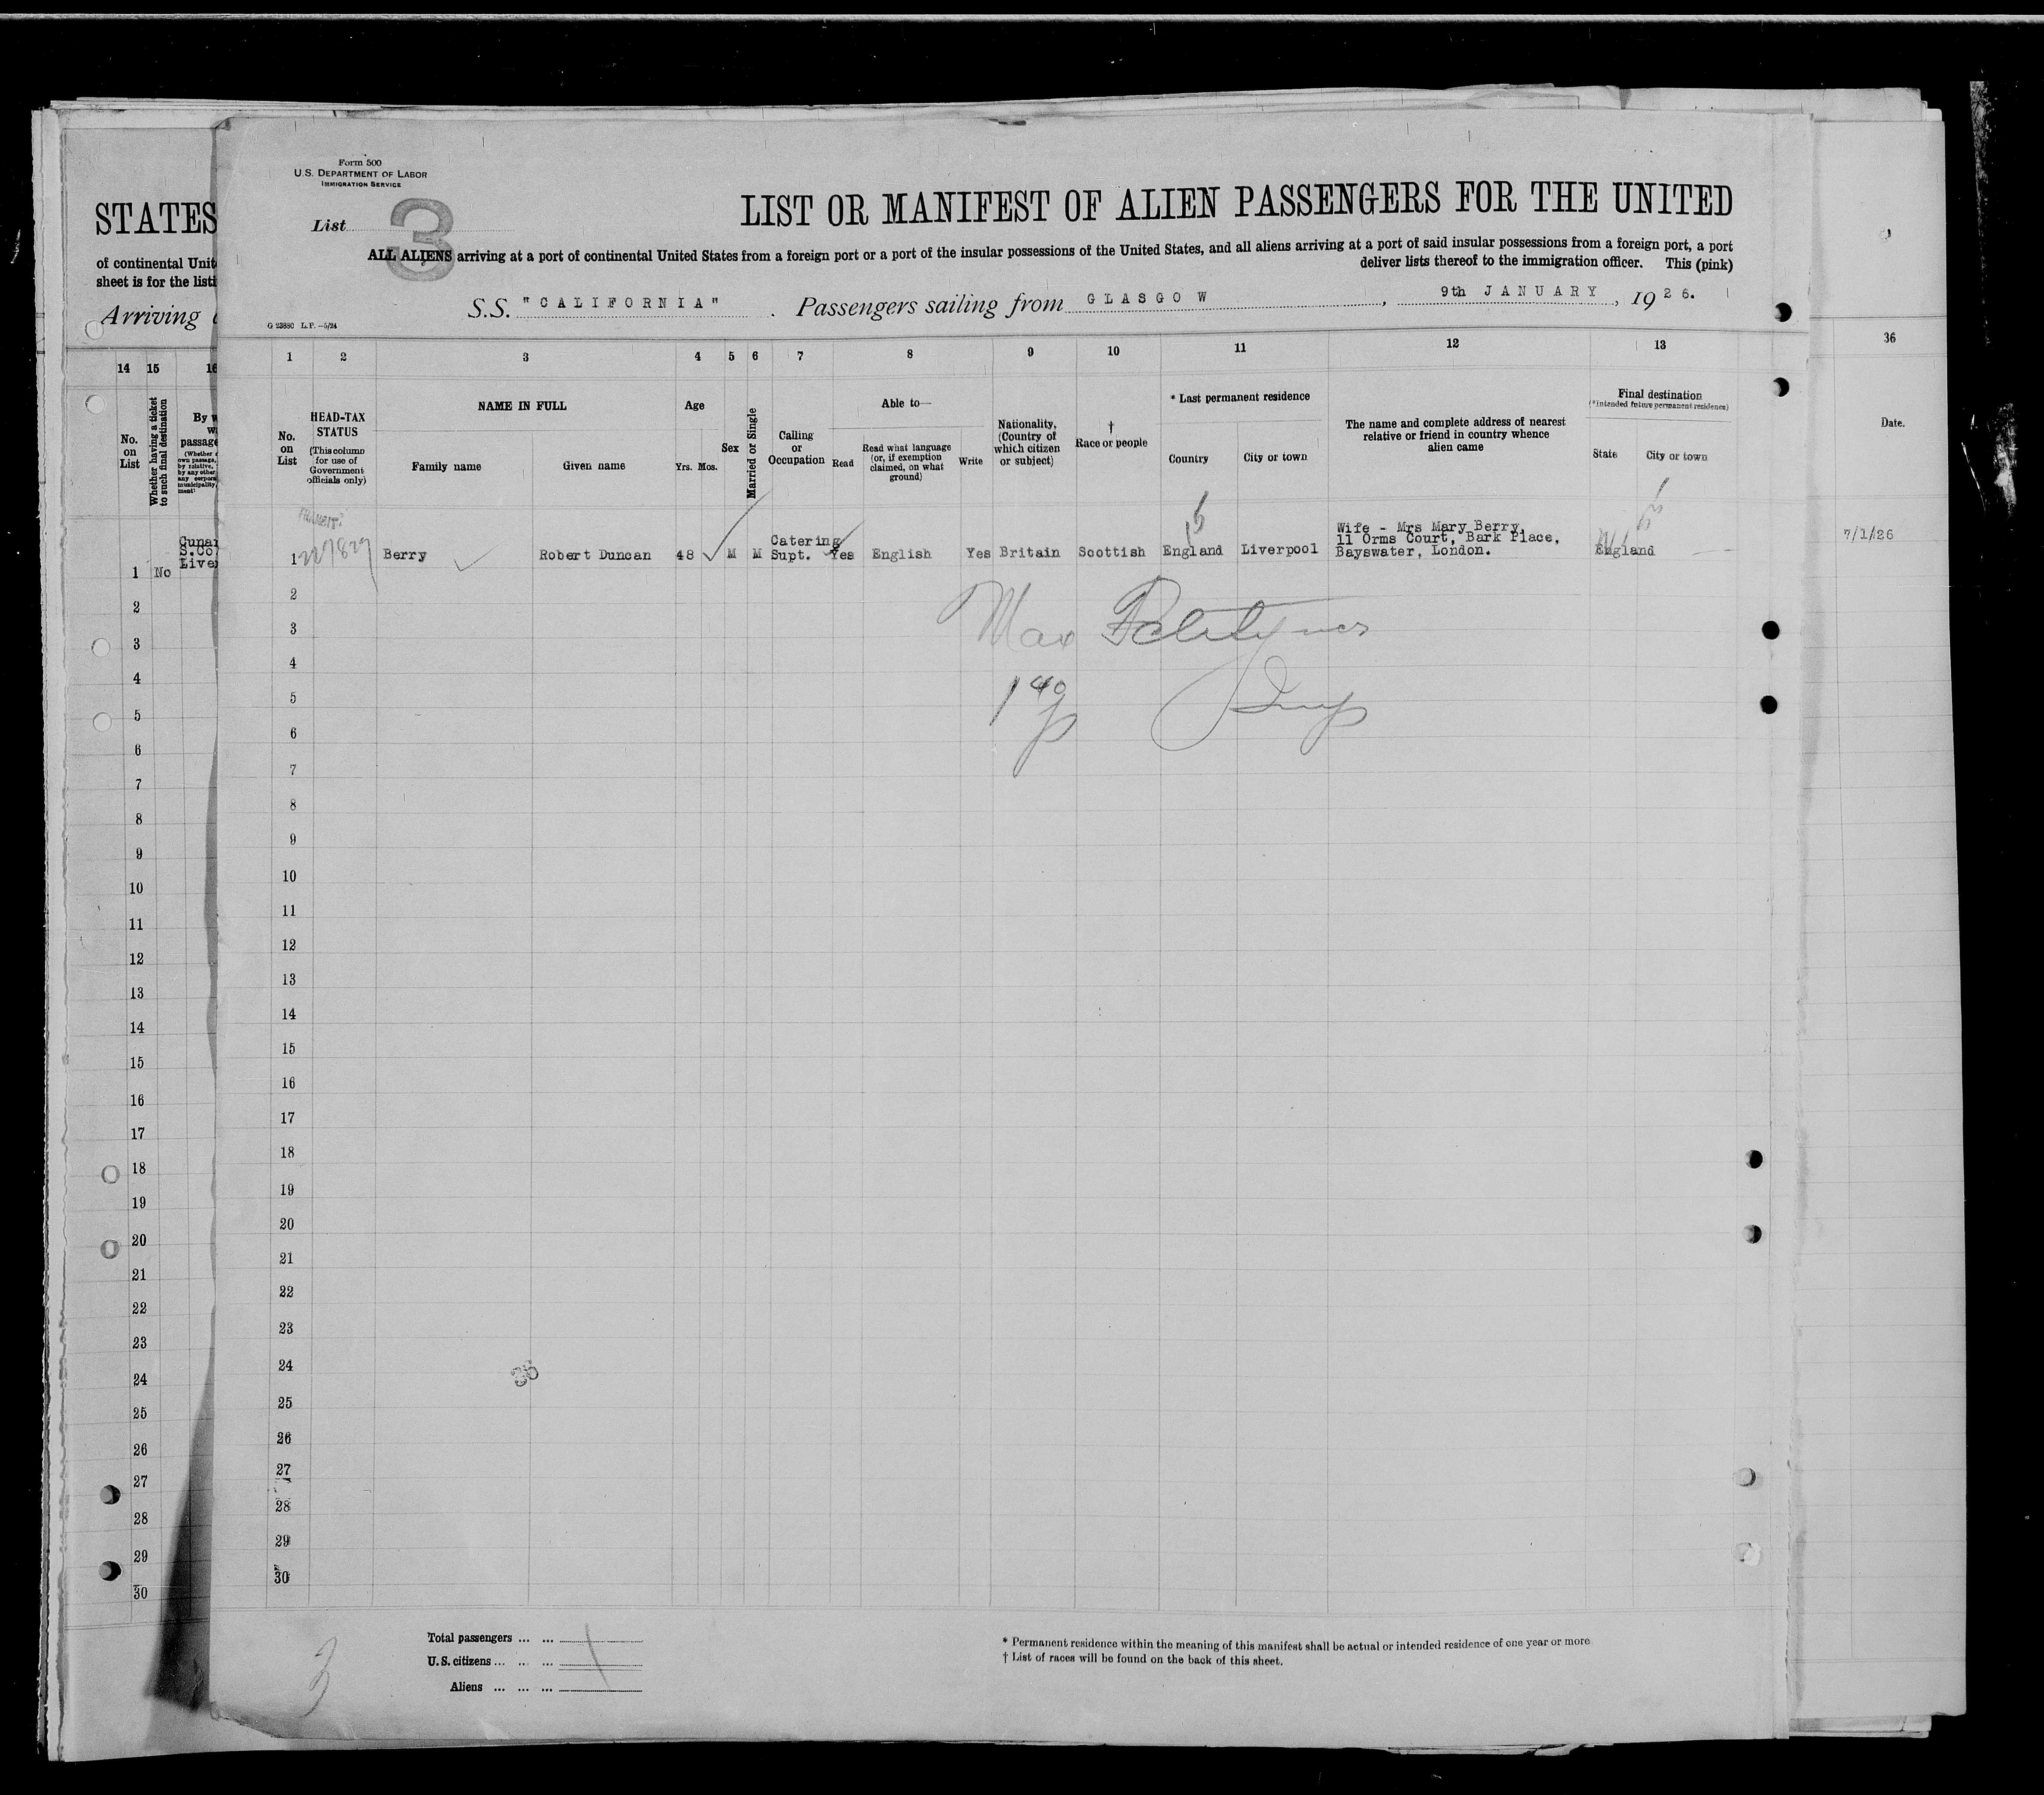 Form 500
U.S. DEPARTMENT OF LABOR
IMMIGRATION SERVICE
List 3
LIST OR MANIFEST OF ALIEN PASSENGERS FOR THE UNITED
ALL ALIENS arriving at a port of continental United States from a foreign port or a port of the insular possessions of the United States, and all aliens arriving at a port of said insular possessions from a foreign port, a port
deliver lists thereof to the immigration officer. This (pink)
S.S. "CALIFORNIA". Passengers sailing from GLASGOW, 9th JANUARY, 1926.
G 23880 L.P.—5/24
STATES
of continental Unit
sheet is for the listi
Arriving
14 15 16
No. on List
Whether having a ticket to such final destination
By w
passage
1 No Cunar
S.Co
Live
2
3
4
5
6
7
8
9
10
11
12
13
14
15
16
17
18
19
20
21
22
23
24
25
26
27
28
29
30
1 2 3 4 5 6 7 8 9 10 11 12 13
No. on List
HEAD-TAX STATUS
(This column for use of Government officials only)
NAME IN FULL
Family name Given name
Age
Yrs. Mos.
Sex
Married or Single
Calling or Occupation
Able to—
Read
Read what language (or, if exemption claimed, on what ground)
Write
Nationality, (Country of which citizen or subject)
† Race or people
* Last permanent residence
Country City or town
The name and complete address of nearest relative or friend in country whence alien came
Final destination
(*Intended future permanent residence)
State City or town
1 Berry Robert Duncan 48 M M Catering Supt. Yes English Yes Britain Scottish England Liverpool Wife - Mrs Mary Berry,
11 Orms Court, Bark Place,
Bayswater, London. England
2
3
4
5
6
7
8
9
10
11
12
13
14
15
16
17
18
19
20
21
22
23
24
25
26
27
28
29
30
36
Date.
7/1/26
Max
36
3
Total passengers ... ...
U.S. citizens ... ... ...
Aliens ... ... ...
* Permanent residence within the meaning of this manifest shall be actual or intended residence of one year or more
† List of races will be found on the back of this sheet.